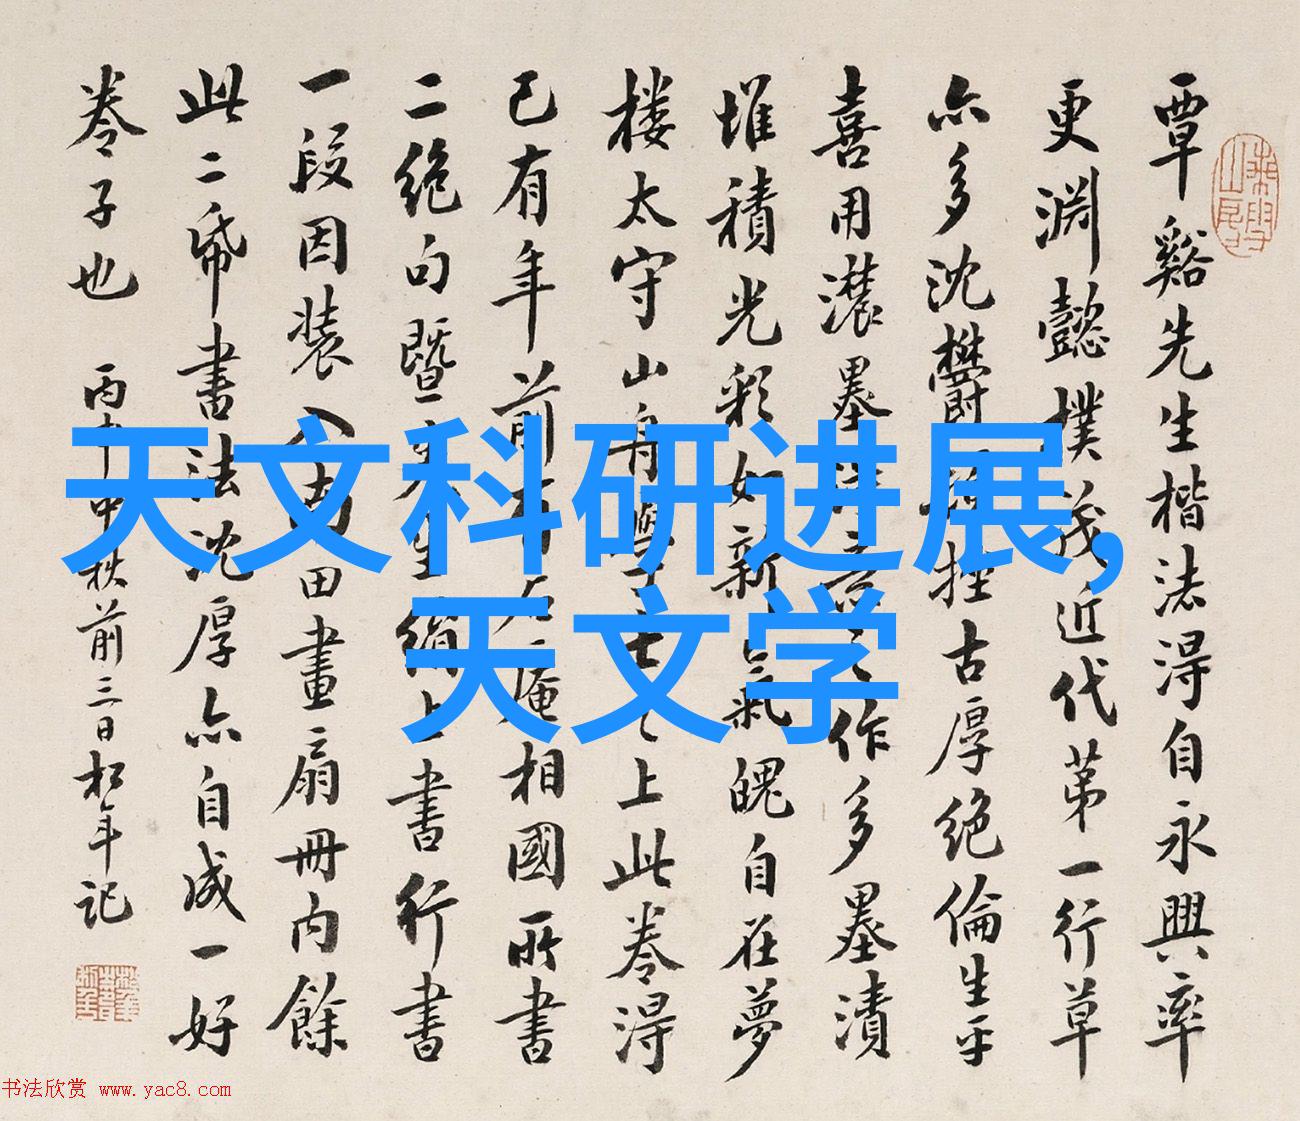 覃谿先生楷法得自永興率
更淵懿樸茂近代第一行草
亦多沈欝拙古厚絶倫生平
喜用濃墨作多墨漬
堆積光彩如新氣魄自在夢
楼太守山舟學士之上此卷得
已有年前年石庵相國所書
二絶句暨生絹上書行書
一段因装入田畫扇冊内餘
此二帋書法沈厚亦自成一好
卷子也
丙申中秋前三日松年記
天文科研进展,
天文学
书法欣赏 www.yac8.com